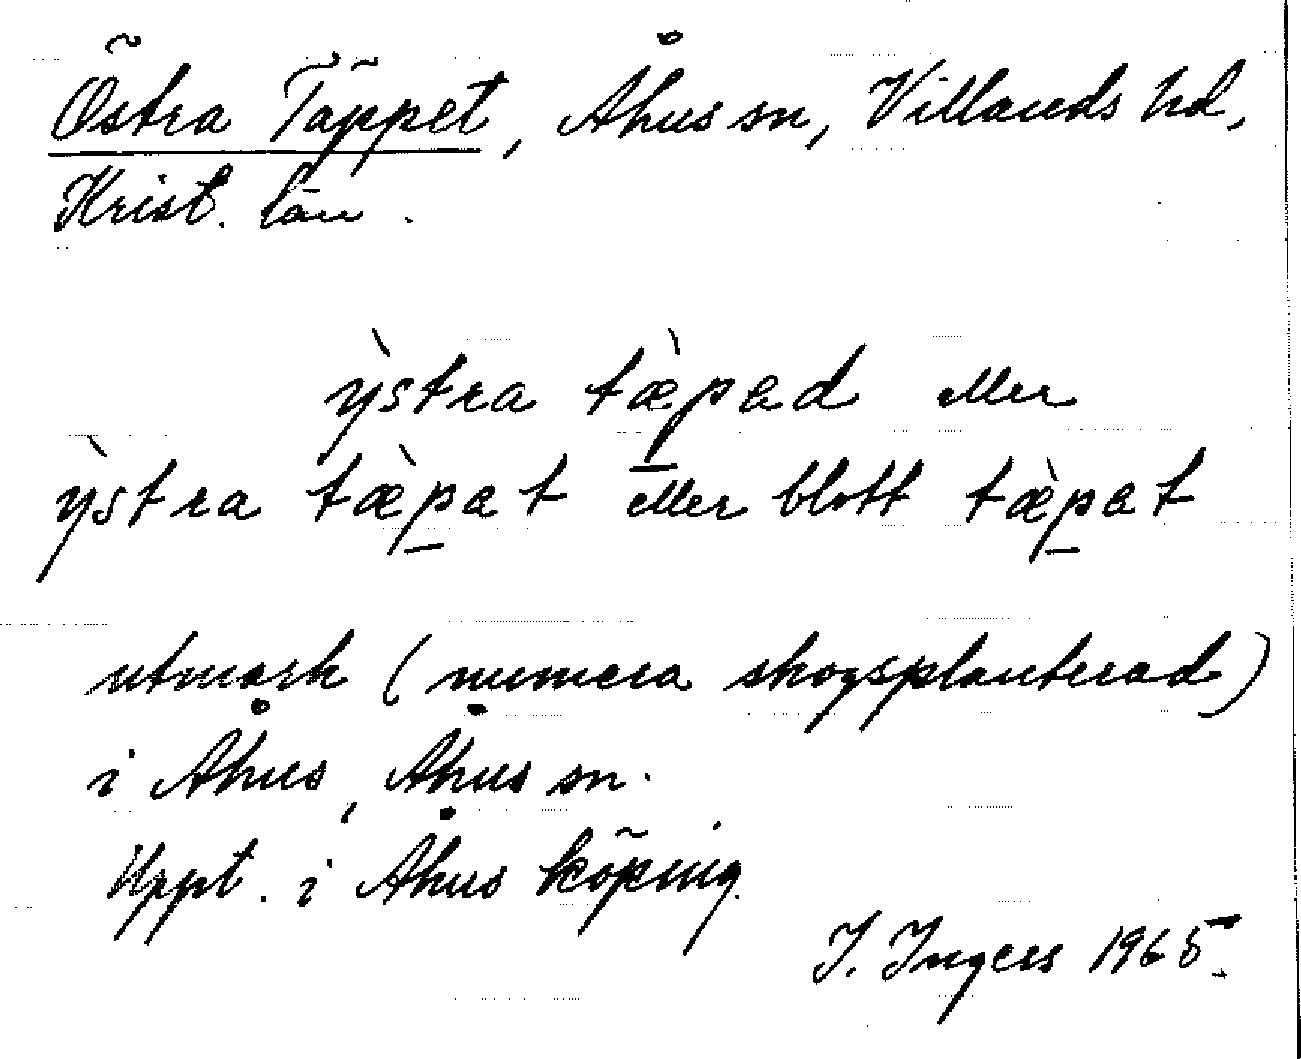 Östra Täppet, Åhus sn, Villands hd,
Krist. län.
ỳstra tæ̀p̠ad eller
ỳstra tæ̀p̠at eller blott tæ̀p̠at
utmark (numera skogsplanterad)
i Åhus, Åhus sn.
Uppt. i Åhus köping.
I. Ingers 1965.